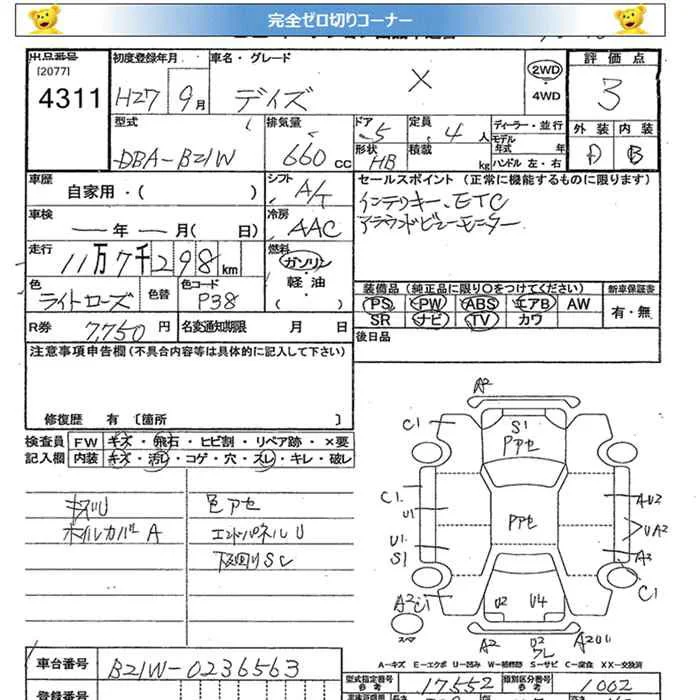 完全ゼロ切りコーナー
出品番号
[2077]
4311
初度登録年月
H27 9月
車名・グレード
デイズ X
2WD
・
4WD
評価点
3
外装 内装
D B
型式
DBA-B21W
排気量
660 CC
ドア
5
形状
HB
定員
4 人
積載
kg
ディーラー・並行
モデル
年式 年
ハンドル 左・右
車歴
自家用・( )
シフト
A/T
車検
年 月( 日)
冷房
AAC
走行
11万7千298 km
燃料
ガソリン
・
軽油
・
( )
色
ライトローズ
色替
色コード
P38
R券
7,750円
名変通知期限 月 日
セールスポイント (正常に機能するものに限ります)
インテリキー、ETC
アラウンドビューモニター
装備品 (純正品に限り○をつけてください)
新車保証書
PS PW ABS エアB AW
有・無
SR ナビ TV カワ
後日品
注意事項申告欄 (不具合内容等は具体的に記入して下さい)
修復歴 有 〔箇所 〕
検査員
記入欄
FW キズ・飛石・ヒビ割・リペア跡・×要
内装 キズ・汚レ・コゲ・穴・スレ・キレ・破レ
キズU
ホイルカバーA
色アセ
エンドパネルU
下回りSC
A2
C1
S1
Pアセ
C1
U1
U1
S1
Pアセ
AU2
UA2
A2
C1
A2C1
スペア
U2
U4
A2
U2
ワレ
A2U1
A-キズ E-エクボ U-凹み W-補修跡 S-サビ C-腐食 XX-交換済
車台番号
B21W-0236563
型式指定番号
参考
17552
類別区分番号
参考
1002
登録番号